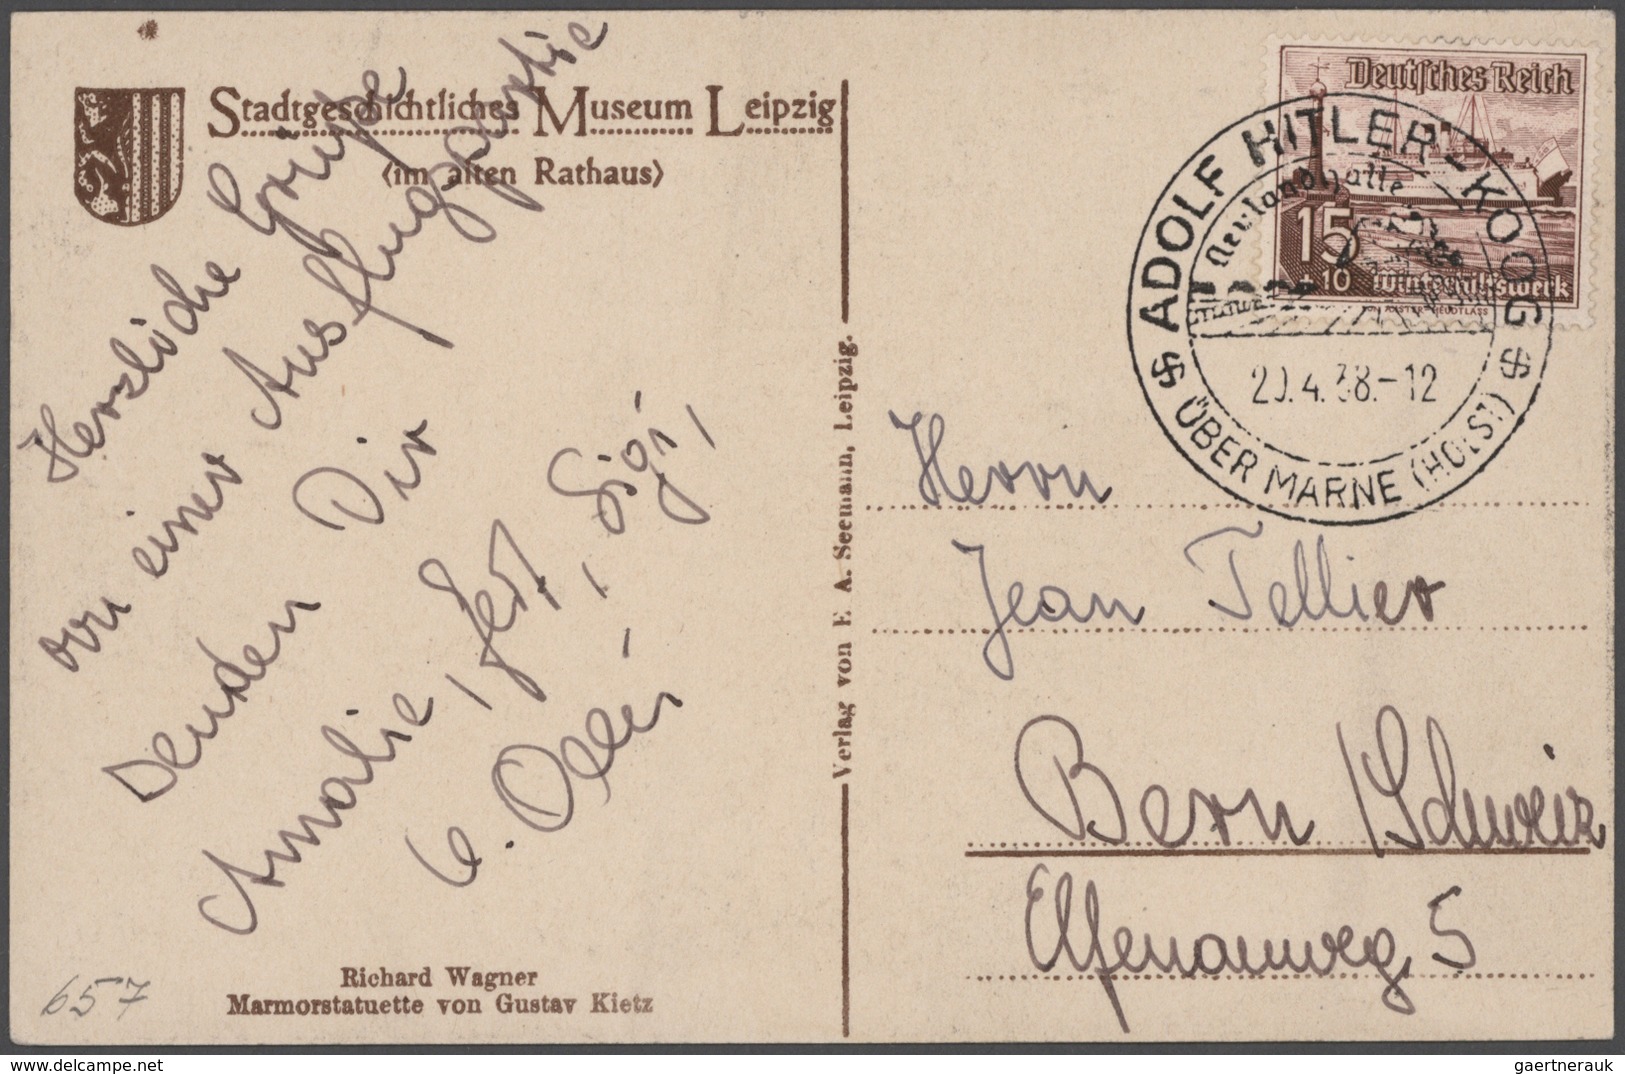 Stadtgeschichtliches Museum Leipzig
(im alten Rathaus)
Herzliche Grüße
von einer Ausflugpartie
senden Dir
Amalie, Gert, Sigi,
Verlag von E. A. Seemann, Leipzig.
Richard Wagner
Marmorstatuette von Gustav Kietz
657
Deutsches Reich
15
+10
Winterhilfswerk
ADOLF HITLER-KOOG
Neulandhalle
20.4.38.-12
ÜBER MARNE (HOLST)
Herrn
Jean Tellier
Bern /Schweiz
Elfenauweg 5
delcampe.net
gaertnerauk